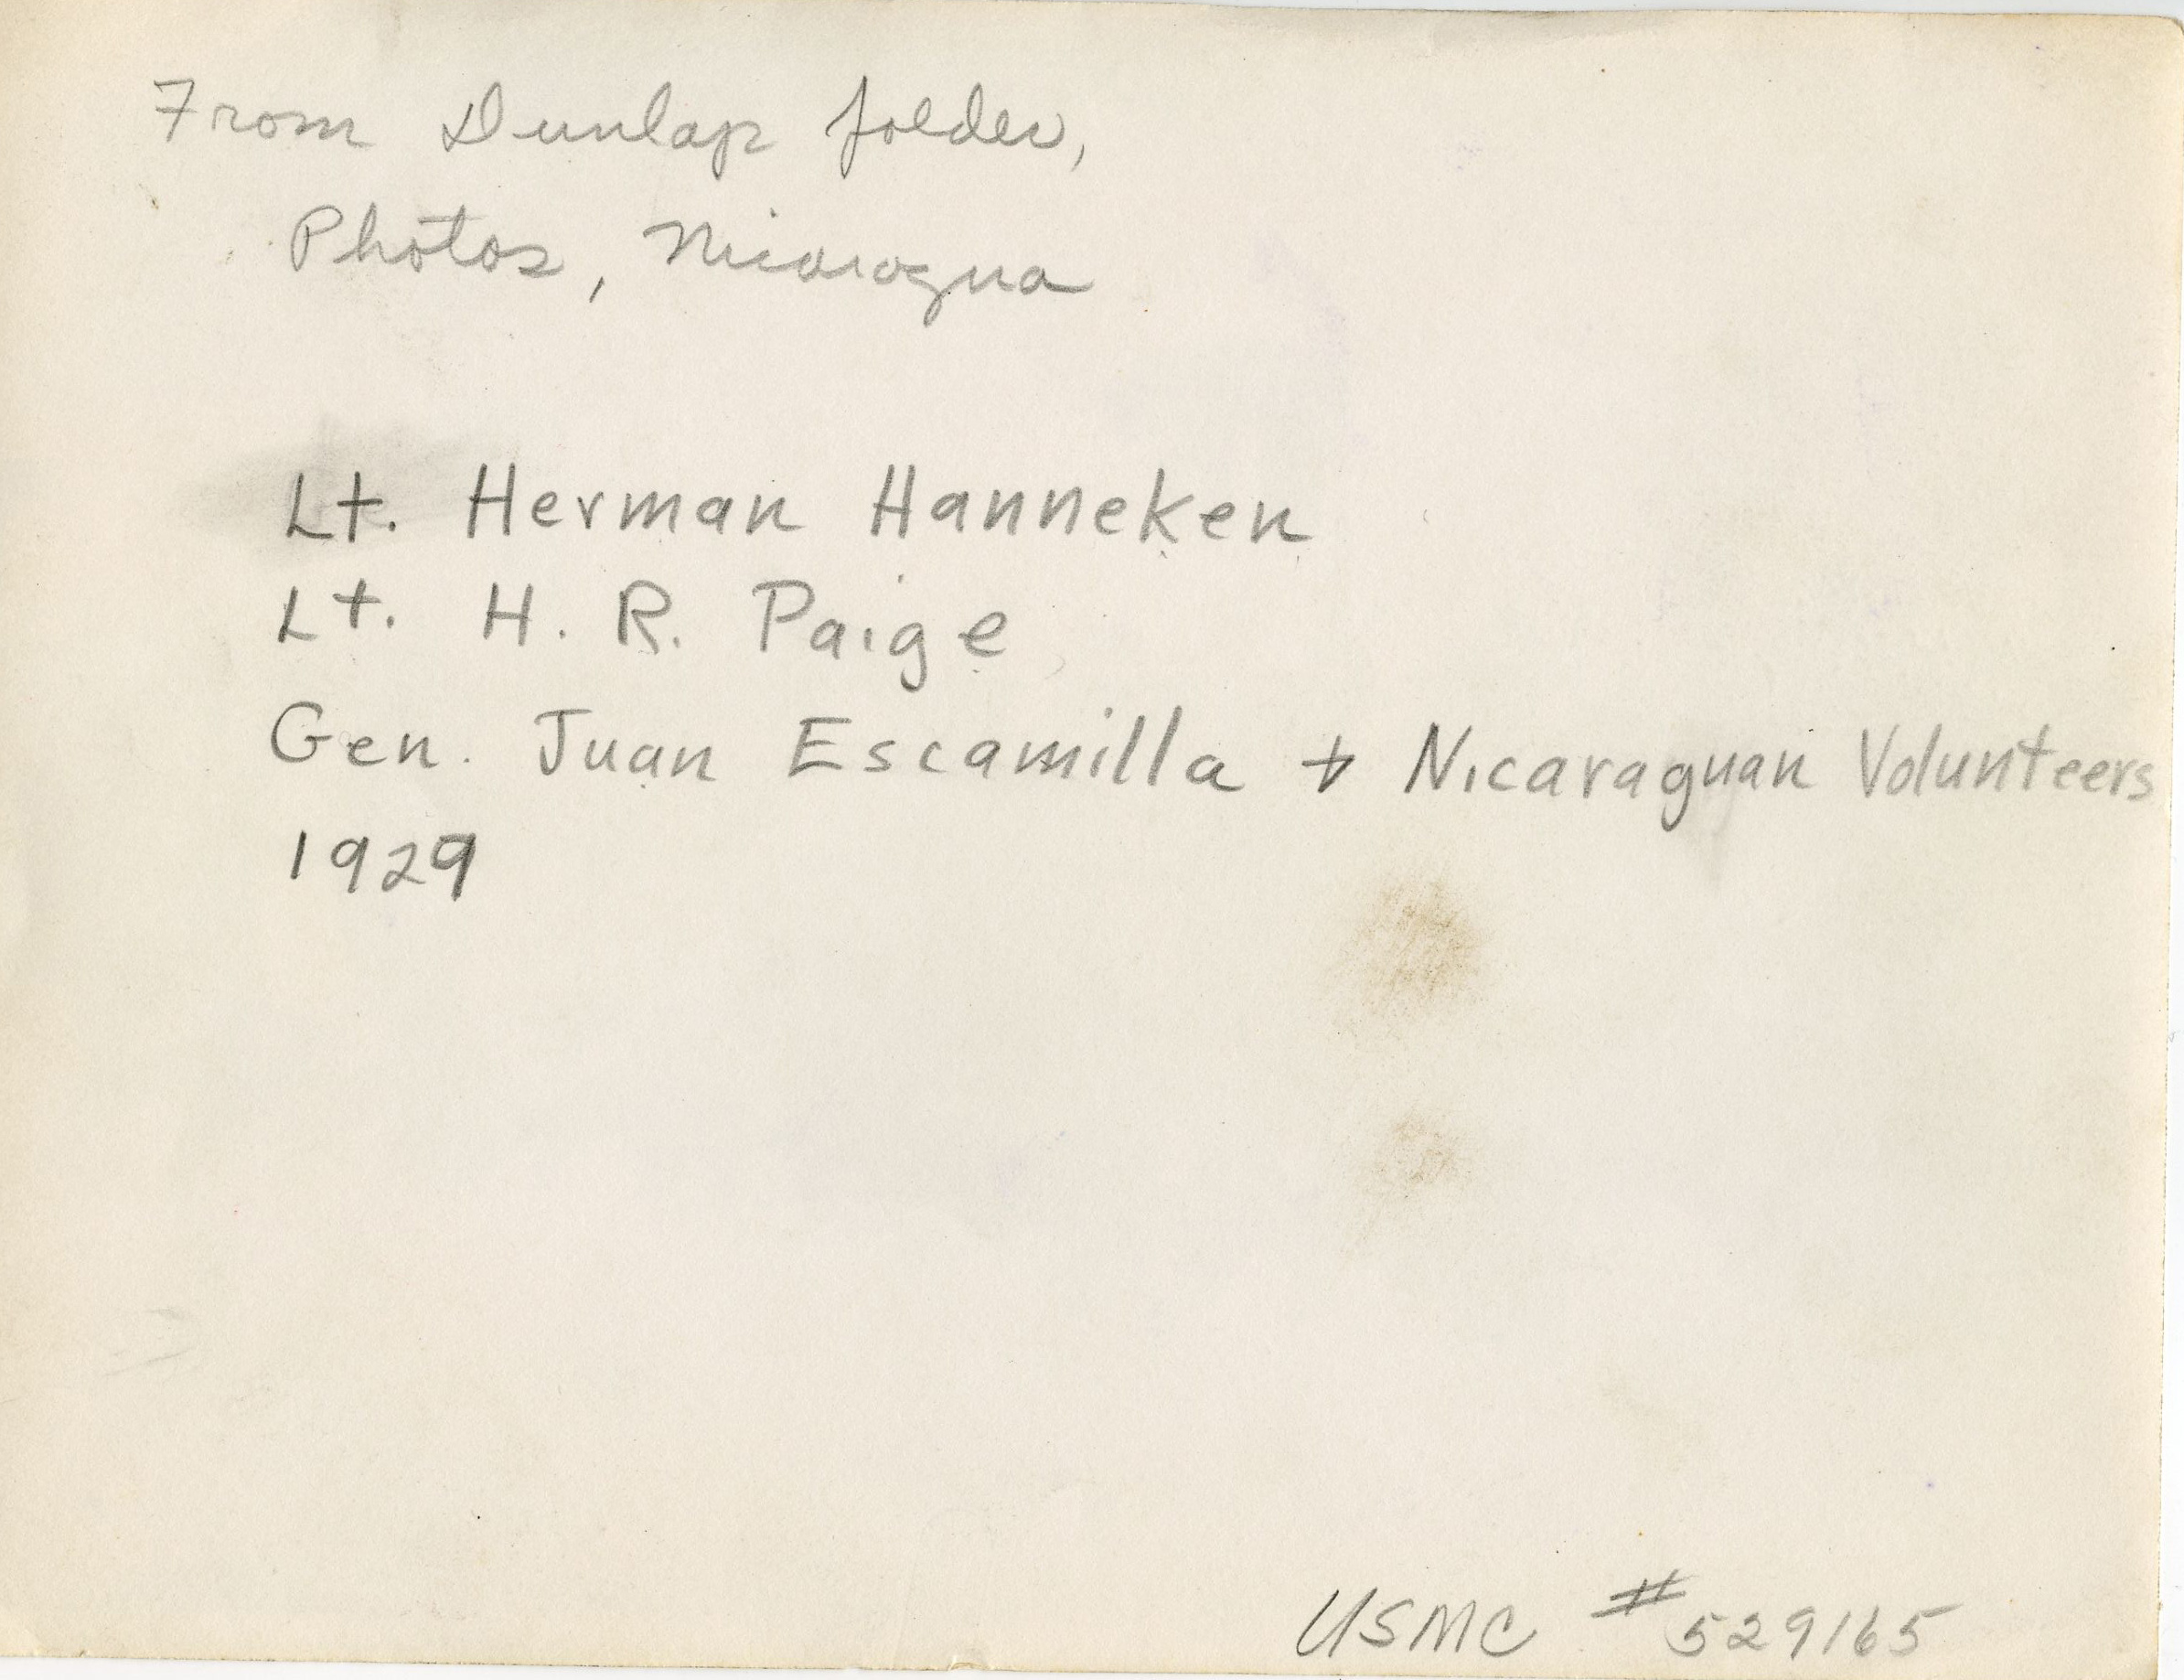 From Dunlap folder,
Photos, Nicaragua
Lt. Herman Hanneken
Lt. H. R. Paige
Gen. Juan Escamilla + Nicaraguan Volunteers
1929
USMC #529165